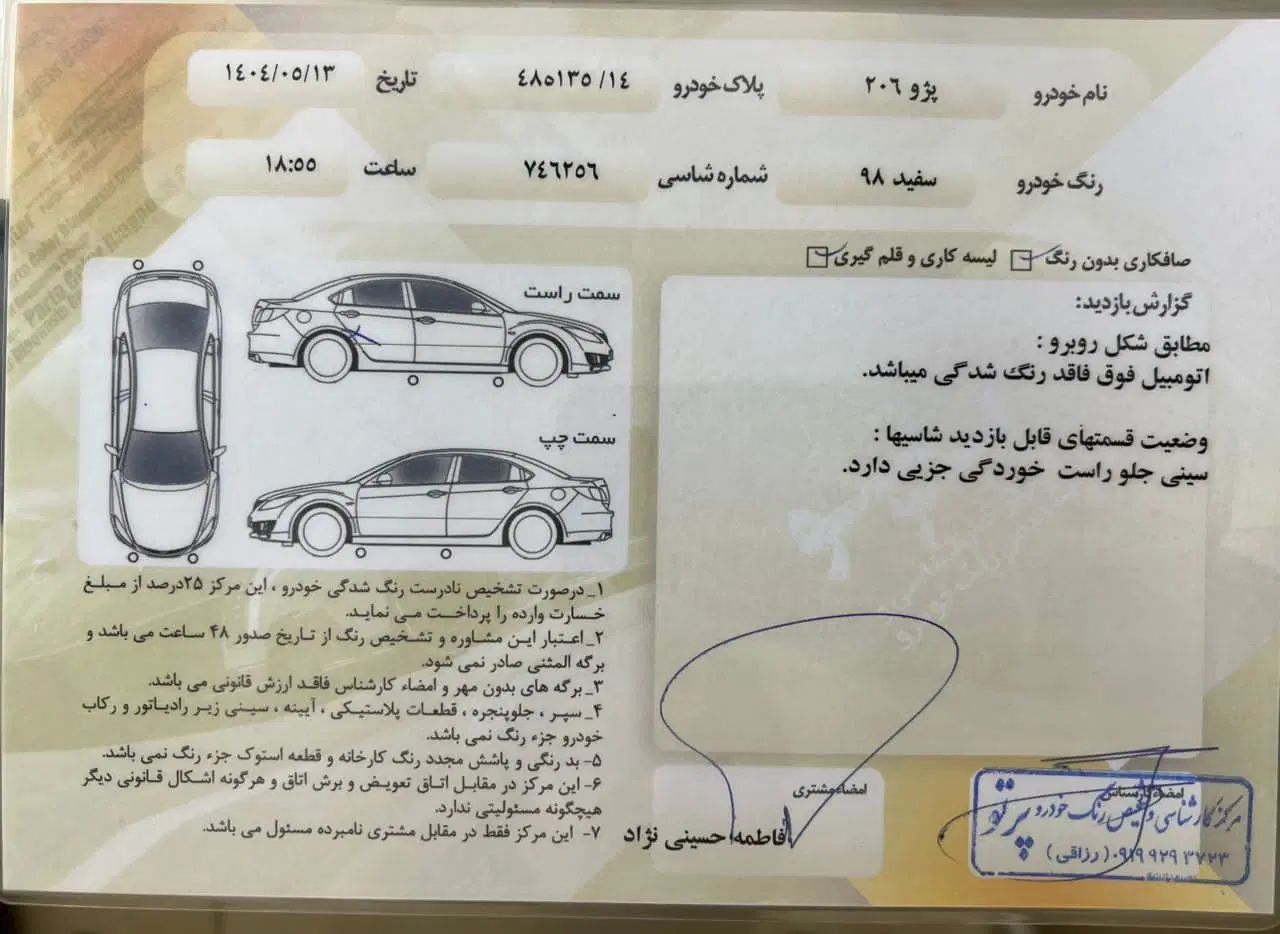 نام خودرو پژو ۲۰۶ پلاک خودرو ٤٨٥١٣٥ /١٤ تاریخ ١٤٠٤/٠٥/١٣
رنگ خودرو سفید ۹۸ شماره شاسی ٧٤٦٢٥٦ ساعت ١٨:٥٥
صافکاری بدون رنگ لیسه کاری و قلم گیری
گزارش بازدید:
مطابق شکل روبرو :
اتومبیل فوق فاقد رنگ شدگی میباشد.
وضعیت قسمتهای قابل بازدید شاسیها :
سینی جلو راست خوردگی جزیی دارد.
سمت راست
سمت چپ
۱_ درصورت تشخیص نادرست رنگ شدگی خودرو ، این مرکز ۲۵درصد از مبلغ
خسارت وارده را پرداخت می نماید.
۲_ اعتبار این مشاوره و تشخیص رنگ از تاریخ صدور ۴۸ ساعت می باشد و
برگه المثنی صادر نمی شود.
۳_ برگه های بدون مهر و امضاء کارشناس فاقد ارزش قانونی می باشد.
۴_ سپر ، جلوپنجره ، قطعات پلاستیکی ، آیینه ، سینی زیر رادیاتور و رکاب
خودرو جزء رنگ نمی باشد.
۵- بد رنگی و پاشش مجدد رنگ کارخانه و قطعه استوک جزء رنگ نمی باشد.
۶- این مرکز در مقابل اتاق تعویض و برش اتاق و هرگونه اشکال قانونی دیگر
هیچگونه مسئولیتی ندارد.
۷- این مرکز فقط در مقابل مشتری نامبرده مسئول می باشد.
امضاء مشتری
فاطمه حسینی نژاد
امضاء کارشناس
مرکز کارشناسی و تشخیص رنگ خودرو پرتو
۰۹۱۹ ۹۲۹ ۳۷۲۳ (رزاقی)